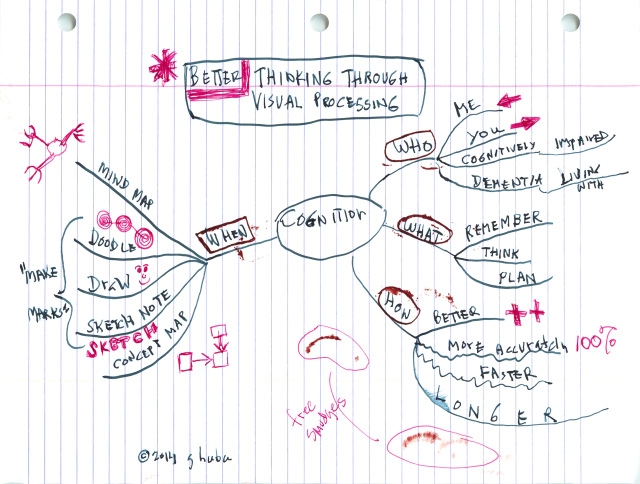 BETTER THINKING THROUGH
VISUAL PROCESSING
COGNITION
WHO
ME
YOU
COGNITIVELY IMPAIRED
DEMENTIA LIVING
WITH
WHAT
REMEMBER
THINK
PLAN
HOW
BETTER ++
MORE ACCURATELY 100%
FASTER
LONGER
WHEN
MIND MAP
DOODLE
DRAW
SKETCH NOTE
SKETCH
CONCEPT MAP
"MAKE
MARKS"
free
smudges
©2014 g huba